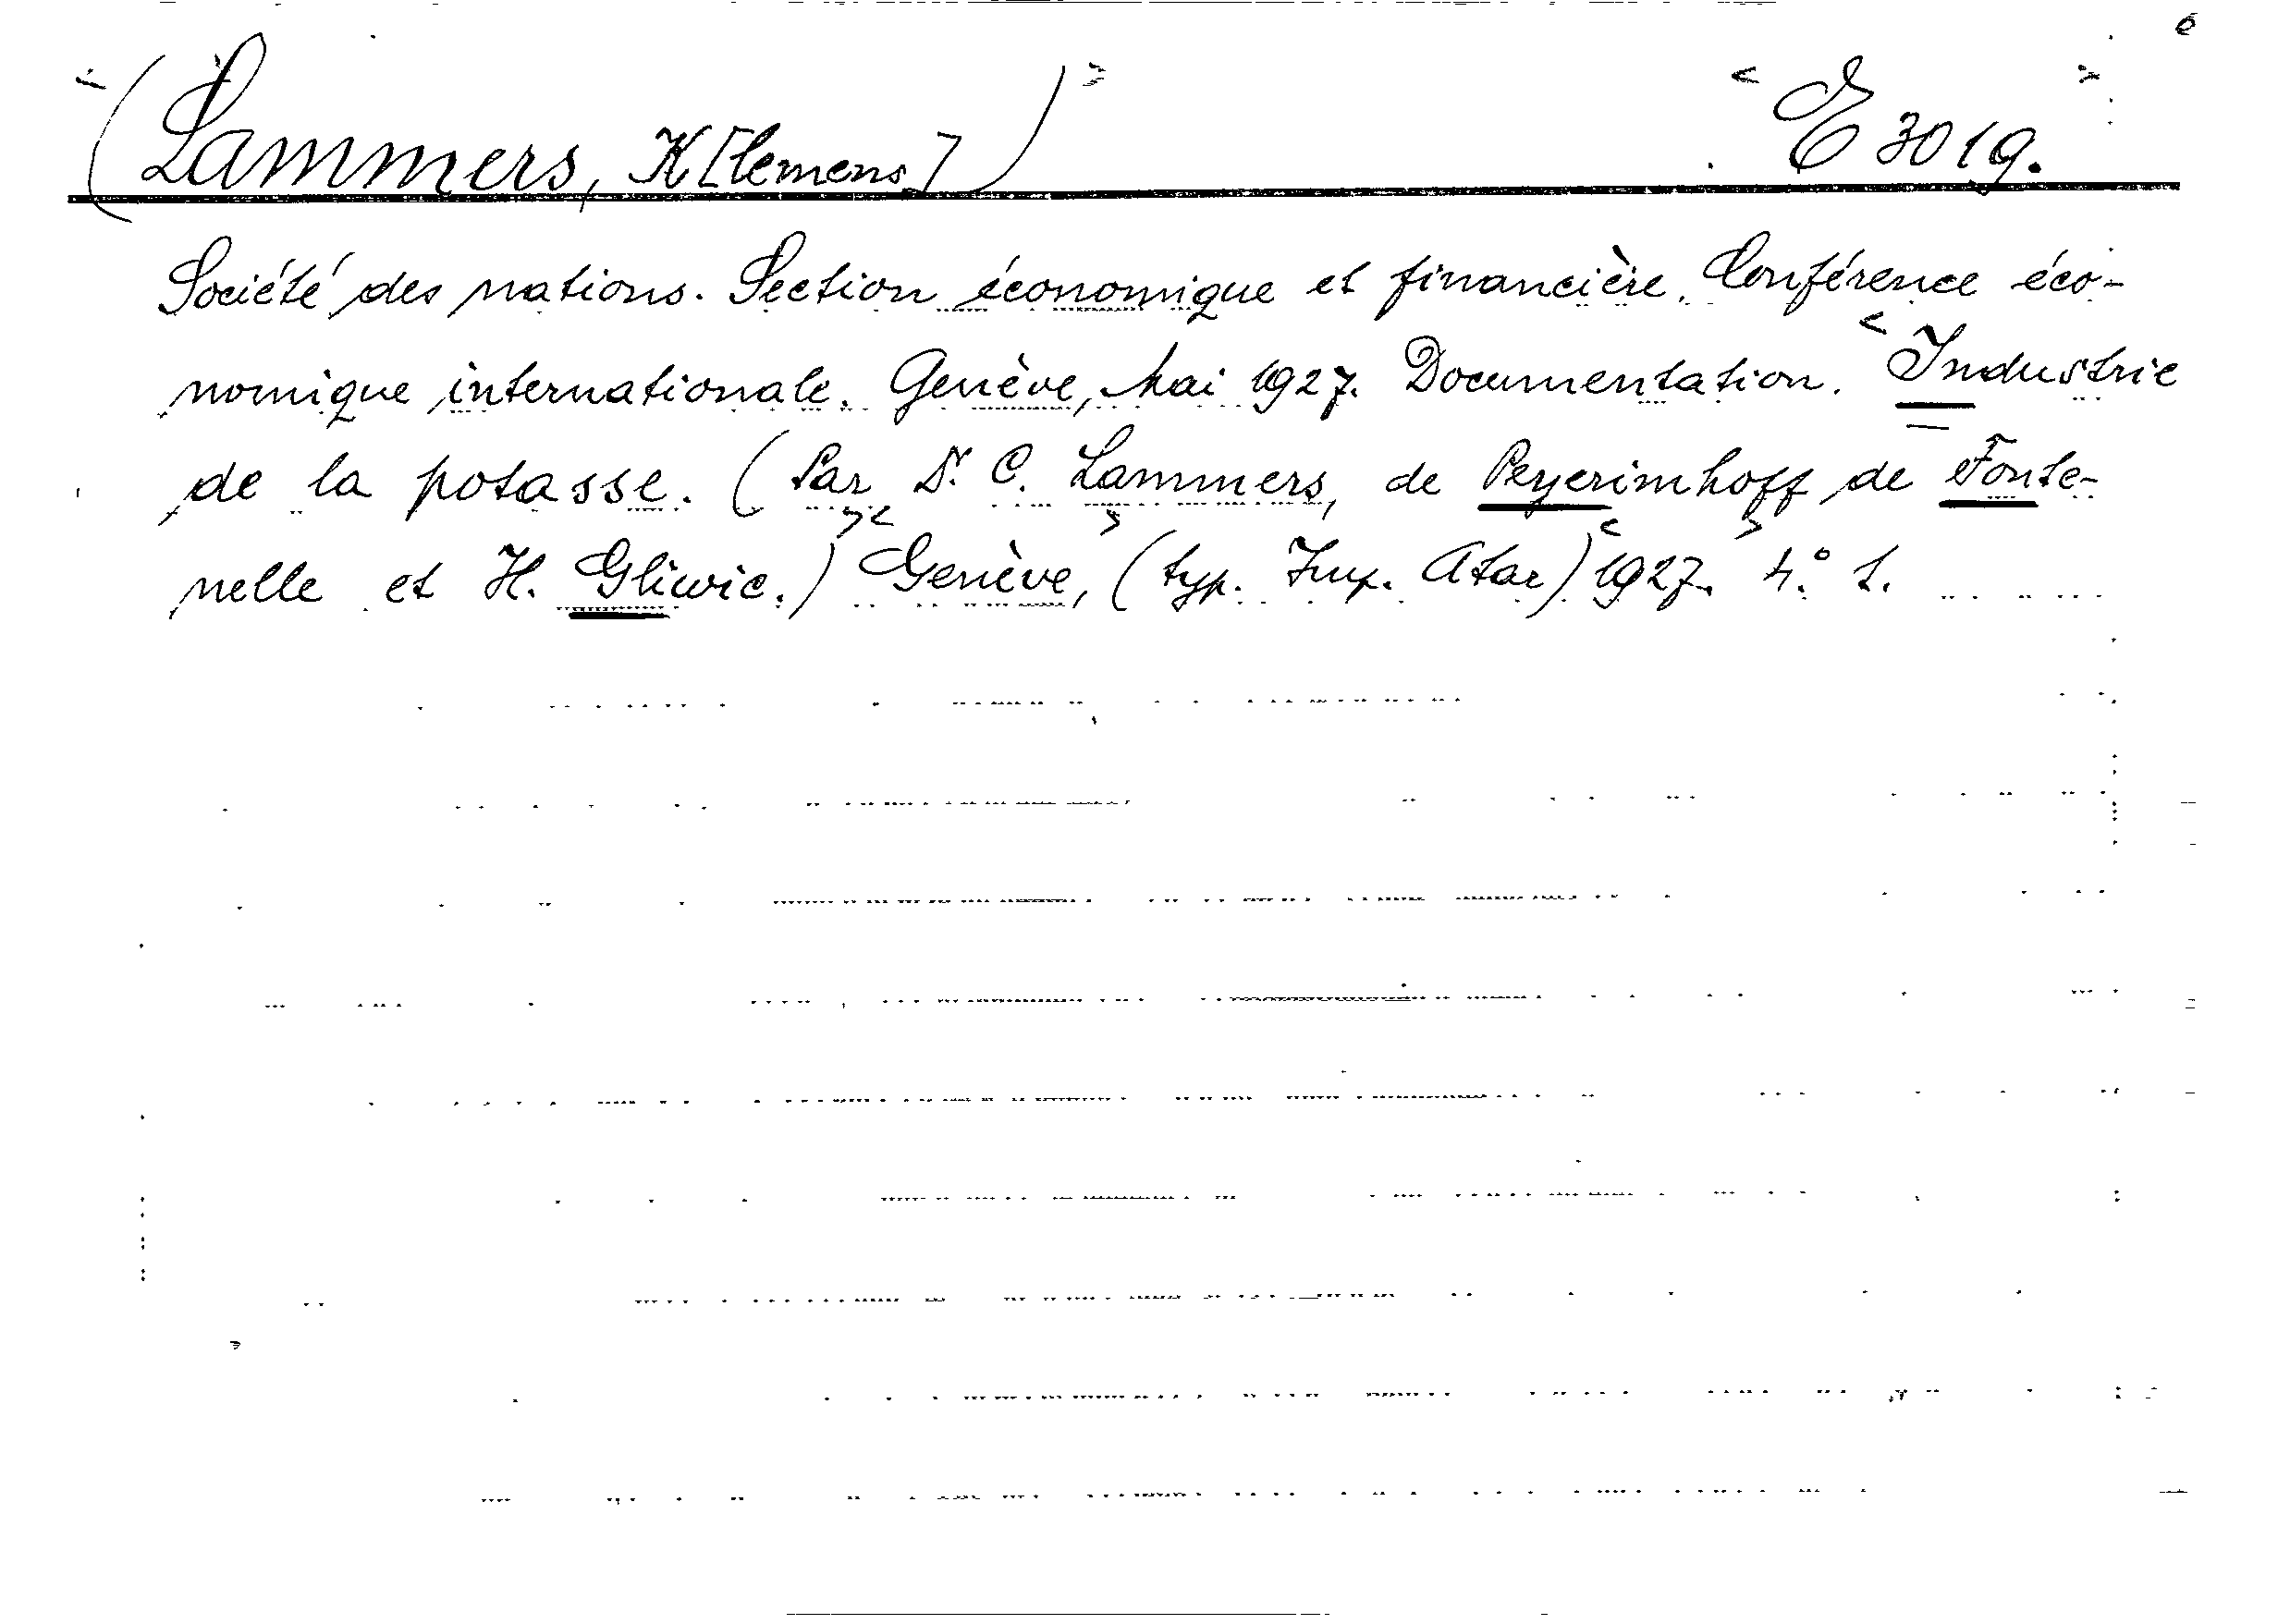 (Lammers, K[lemens]) E 3019.
Société des nations. Section économique et financière. Conférence éco-
nomique internationale. Genève, Mai 1927. Documentation. Industrie
de la potasse. (Par Dr. C. Lammers, de Peyerimhoff de Fonte-
nelle et H. Gliwic.) Genève, (typ. Imp. Atar) 1927. 4.° 1.